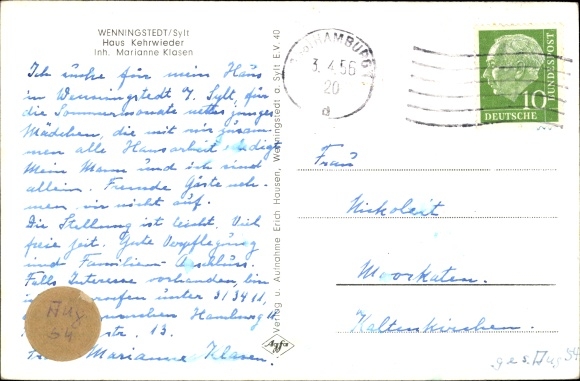 WENNINGSTEDT/Sylt
Haus Kehrwieder
Inh. Marianne Klasen
Ich suche für mein Haus
in Wenningstedt /. Sylt, für
die Sommermonate nettes junges
Mädchen, die mit mir zusam-
men alle Hausarbeit erledigt.
Mein Mann und ich sind
allein. Fremde Gäste neh-
men wir nicht auf.
Die Stellung ist leicht. Viel
freie Zeit. Gute Verpflegung
und Familien-Anschluss.
Falls Interesse vorhanden, bin
unter 313411,
Hamburg 11
str. 13.
Marianne Klasen.
Aug
54
Verlag u. Aufnahme Erich Hausen, Wenningstedt a. Sylt E.V. 40
Agfa
HAMBURG
3.4.56
20
d
10
DEUTSCHE
BUNDESPOST
Frau
Nickoleit
Moorkaten.
Kaltenkirchen.
ges. Aug 54